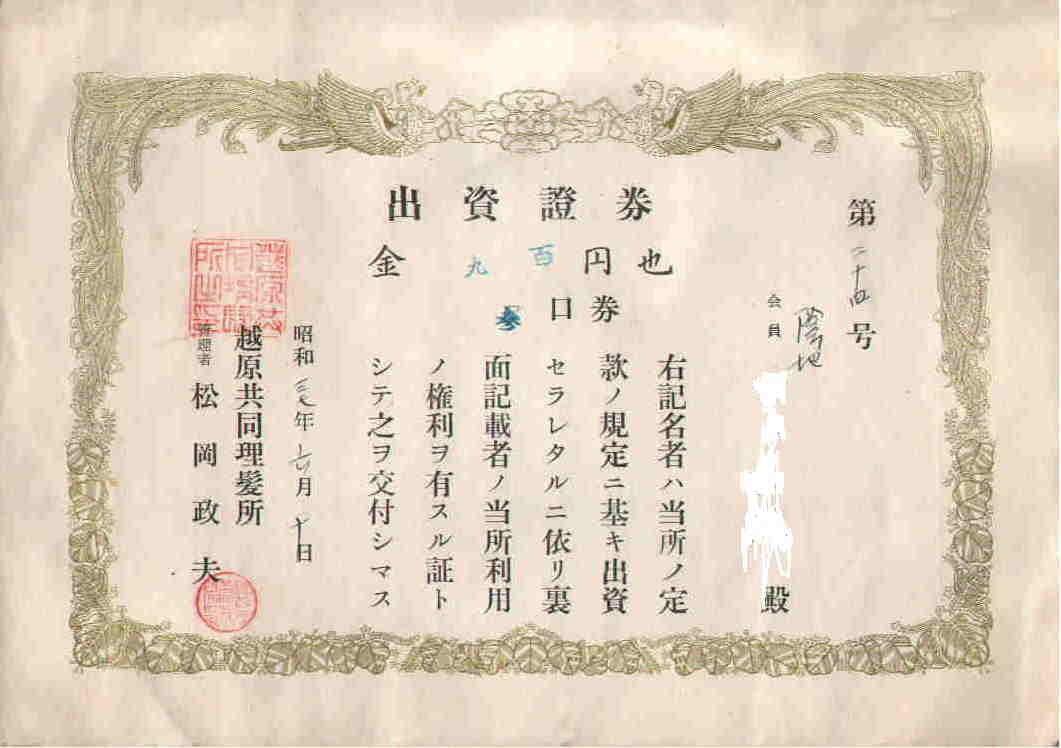 出資證券
金九百円也
参口券
第二十四号
会員 陰地 殿
右記名者ハ当所ノ定
款ノ規定ニ基キ出資
セラレタルニ依リ裏
面記載者ノ当所利用
ノ権利ヲ有スル証ト
シテ之ヲ交付シマス
昭和三七年六月十日
越原共同理髪所
管理者 松岡政夫